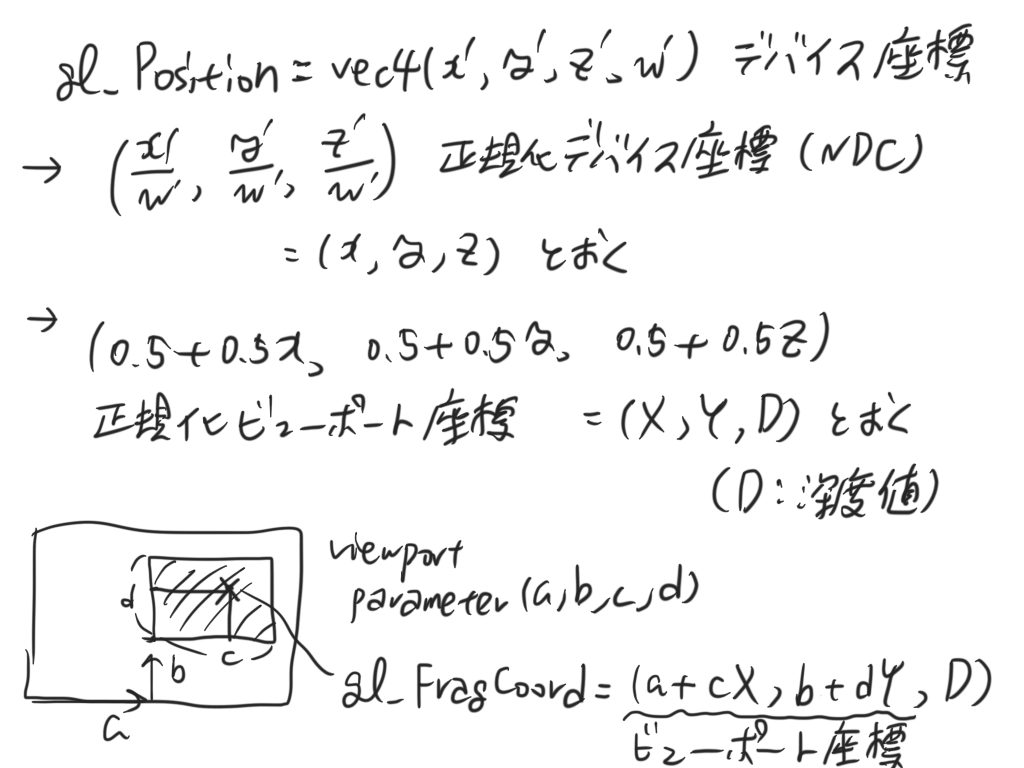 gl_Position = vec4(x', y', z', w') デバイス座標
→ (x'/w', y'/w', z'/w') 正規化デバイス座標 (NDC)
= (x, y, z) とおく
→ (0.5+0.5x, 0.5+0.5y, 0.5+0.5z)
正規化ビューポート座標 = (X, Y, D) とおく
(D:深度値)
viewport
parameter (a, b, c, d)
d
c
b
a
gl_FragCoord = (a+cX, b+dY, D)
ビューポート座標